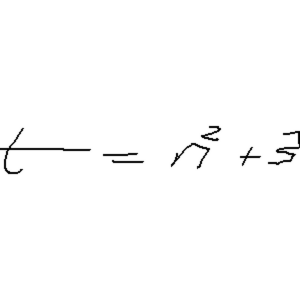 t = n² + 3